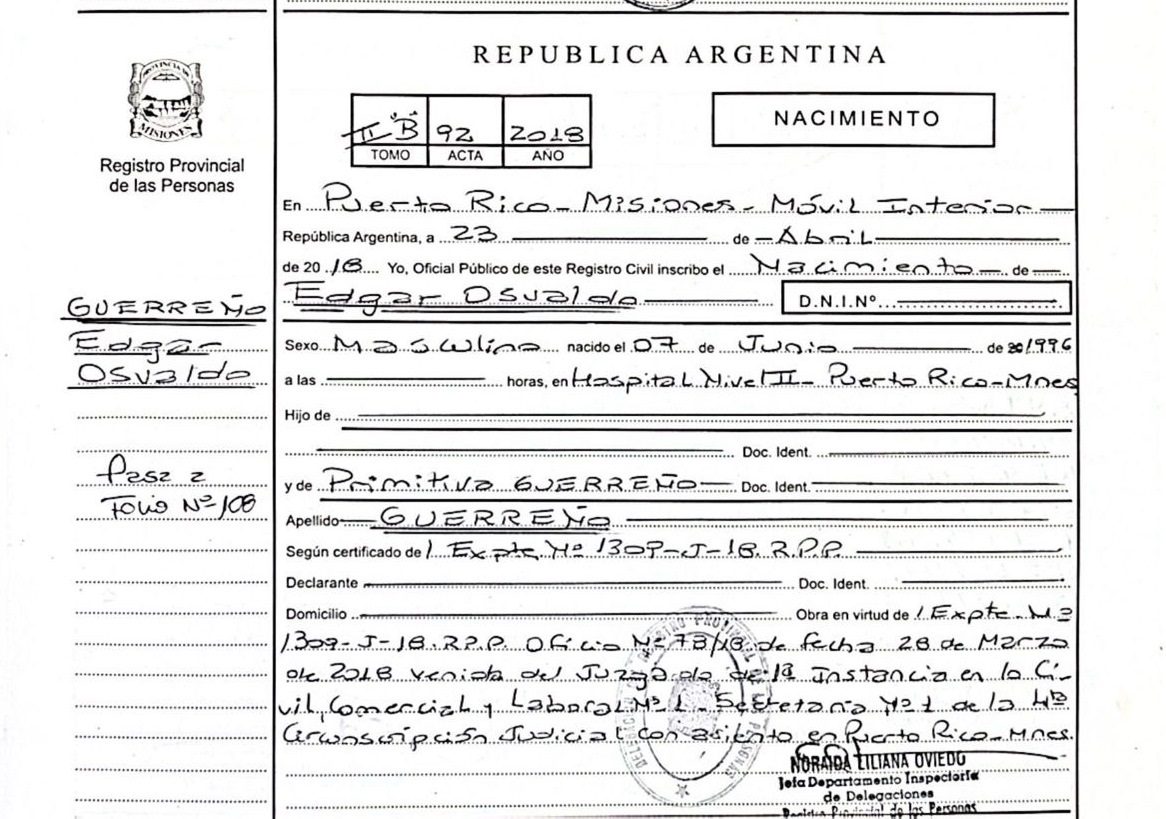 REPUBLICA ARGENTINA
PROVINCIA DE
MISIONES
Registro Provincial
de las Personas
III "B" 92 2018
TOMO ACTA AÑO
NACIMIENTO
En Puerto Rico - Misiones - Móvil Interior
República Argentina, a 23 de Abril
de 2018 Yo, Oficial Público de este Registro Civil inscribo el Nacimiento de
Edgar Osvaldo D.N.I.Nº
GUERREÑO
Edgar
Osvaldo
Sexo Masculino nacido el 07 de Junio de 1996
a las horas, en Hospital Nivel II - Puerto Rico - Mnes
Hijo de
Doc. Ident.
Pasa a
Folio Nº 108
y de Primitiva GUERREÑO Doc. Ident.
Apellido GUERREÑO
Según certificado de / Expte Nº 1309-J-18. R.P.P.
Declarante Doc. Ident.
Domicilio Obra en virtud de / Expte. Nº
1309-J-18. R.P.P. Oficio Nº 78/18 de fecha 28 de Marzo
de 2018 venida del Juzgado de 1ª Instancia en lo Ci-
vil, Comercial y Laboral Nº 1 - Secretaria Nº 1 de la 4ta
Circunscripción Judicial con asiento en Puerto Rico - Mnes.
NORAIDA LILIANA OVIEDO
Jefa Departamento Inspectoría
de Delegaciones
Registro Provincial de las Personas